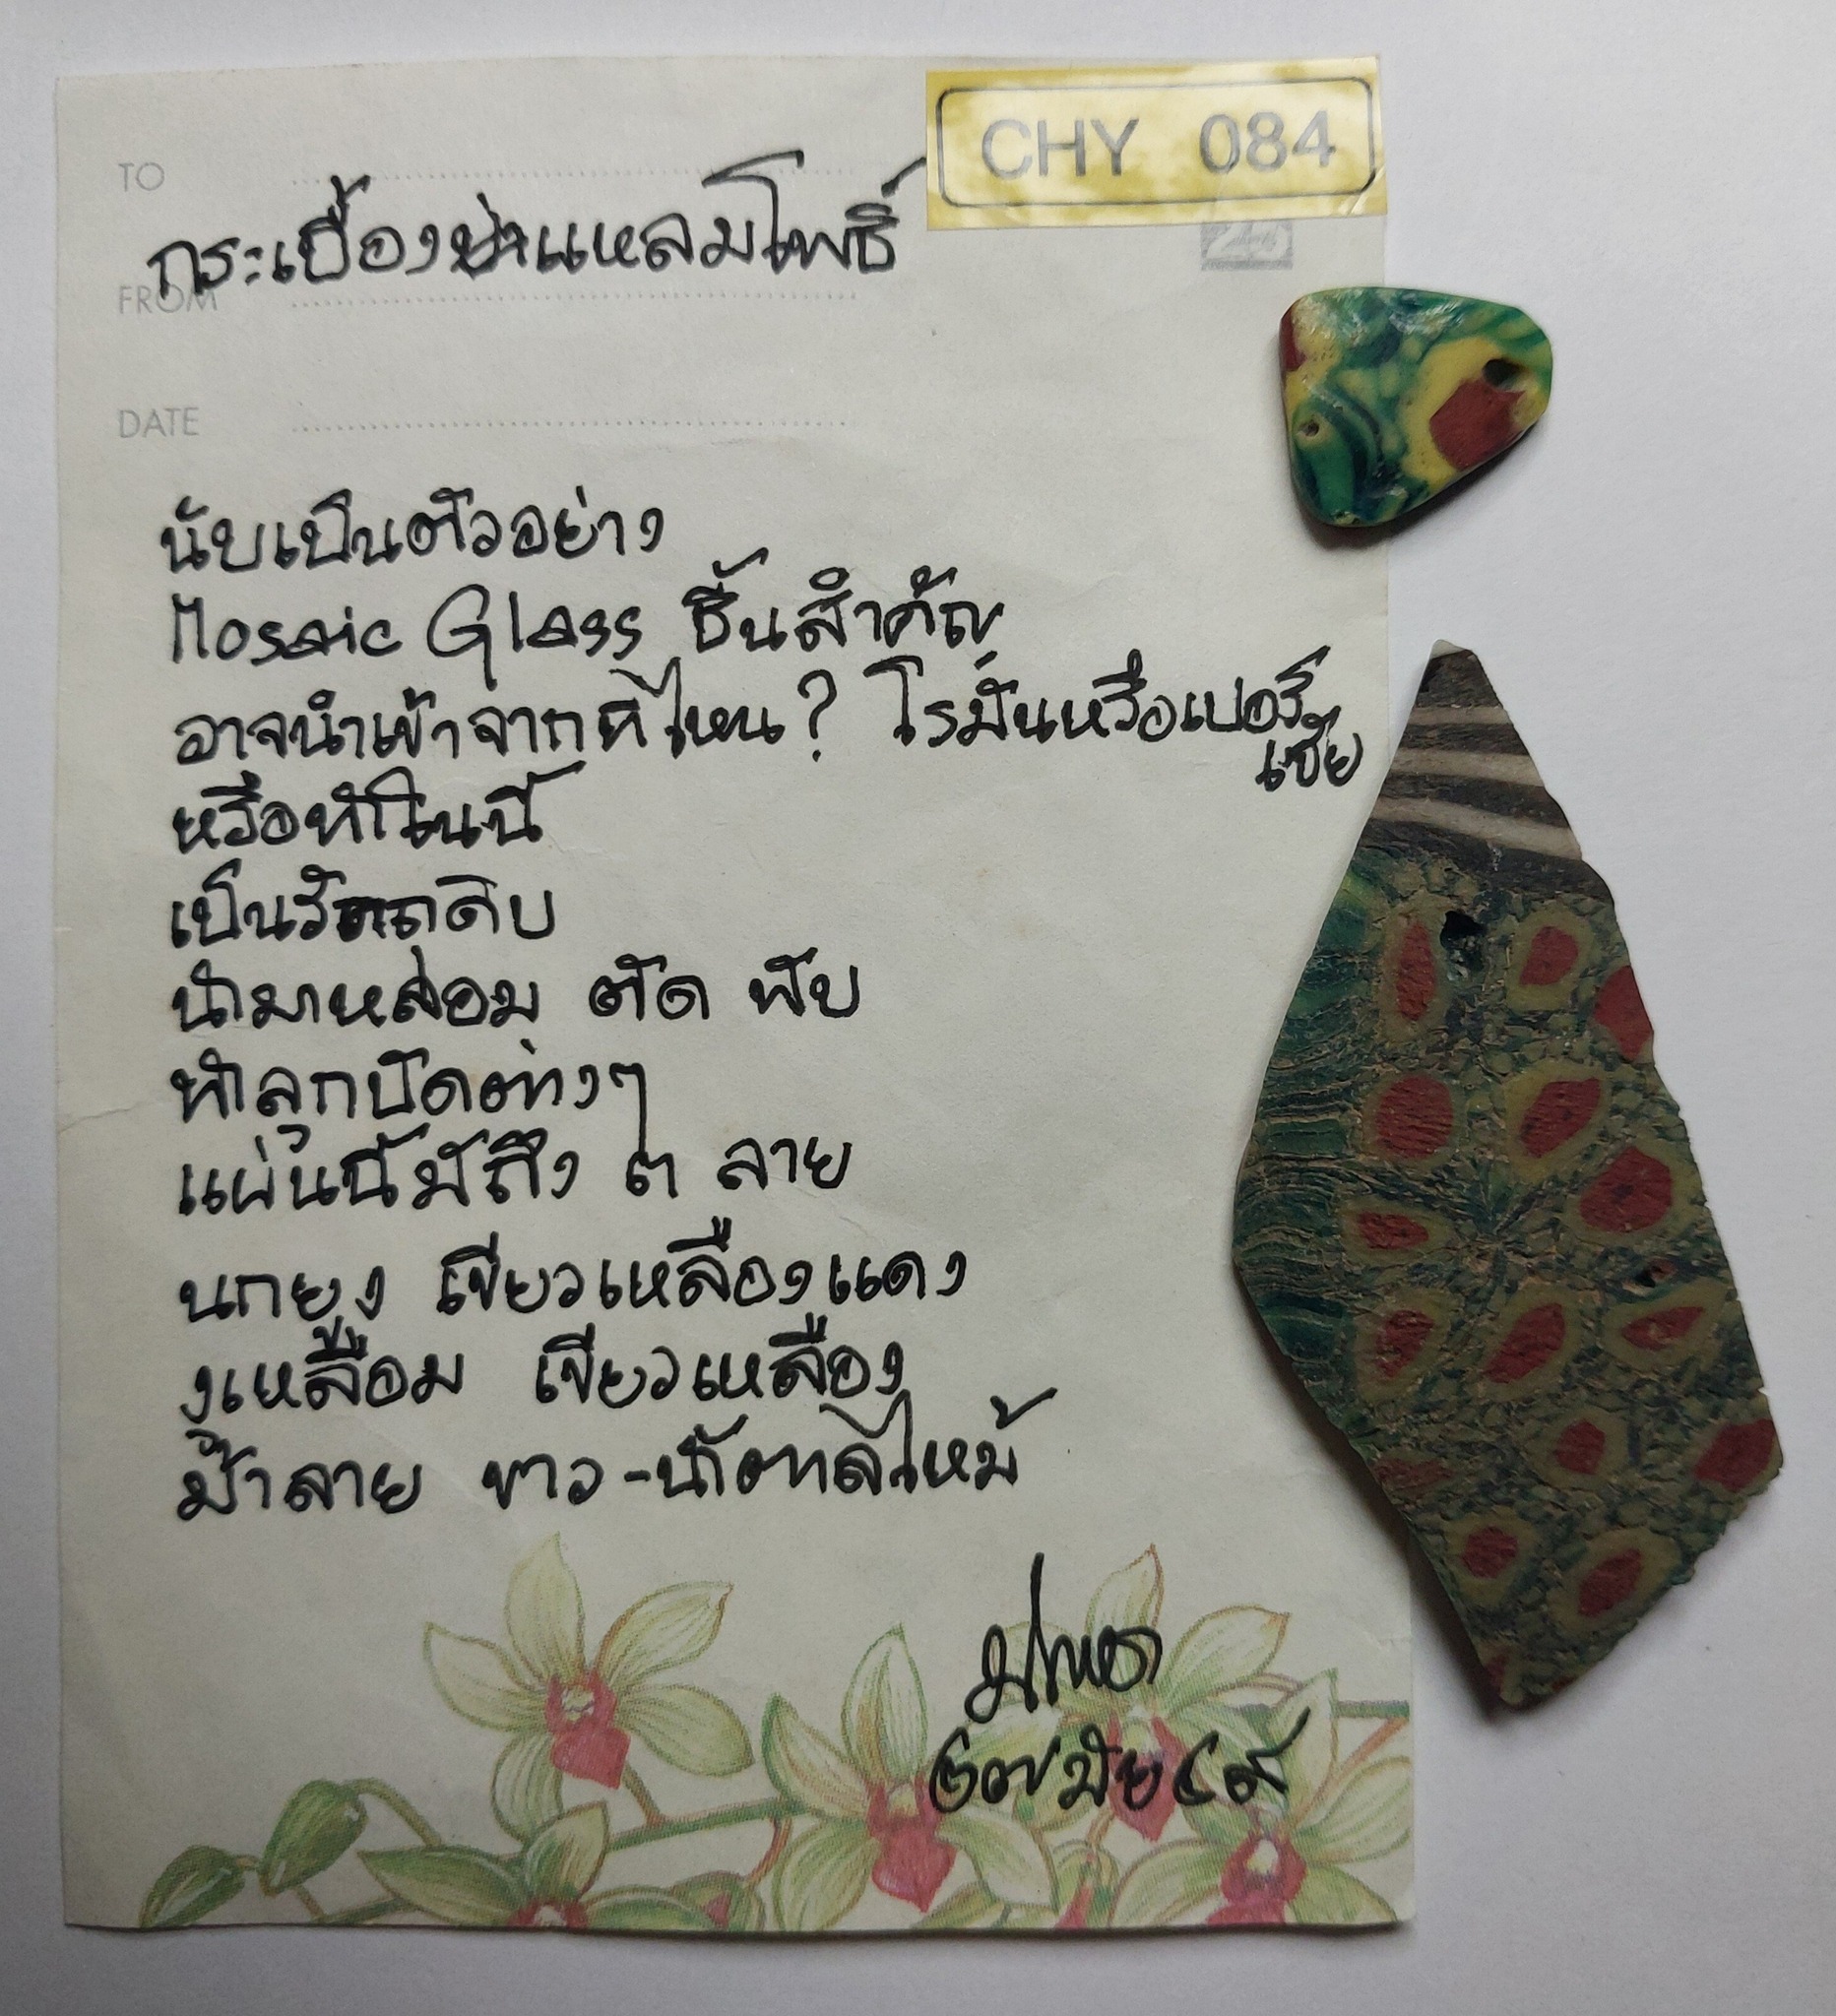 CHY 084
TO
กระเบื้องแหลมโพธิ์
FROM
DATE
นับเป็นตัวอย่าง
Mosaic Glass ชิ้นสำคัญ
อาจนำเข้าจากที่ไหน? โรมันหรือเปอร์
เซีย
หรือทำในนี้
เป็นวัตถุดิบ
นำมาหลอม ตัด พับ
ทำลูกปัดต่างๆ
แผ่นนี้มีถึง ๓ ลาย
นกยูง เขียวเหลืองแดง
งูเหลือม เขียวเหลือง
ม้าลาย ขาว-น้ำตาลไหม้